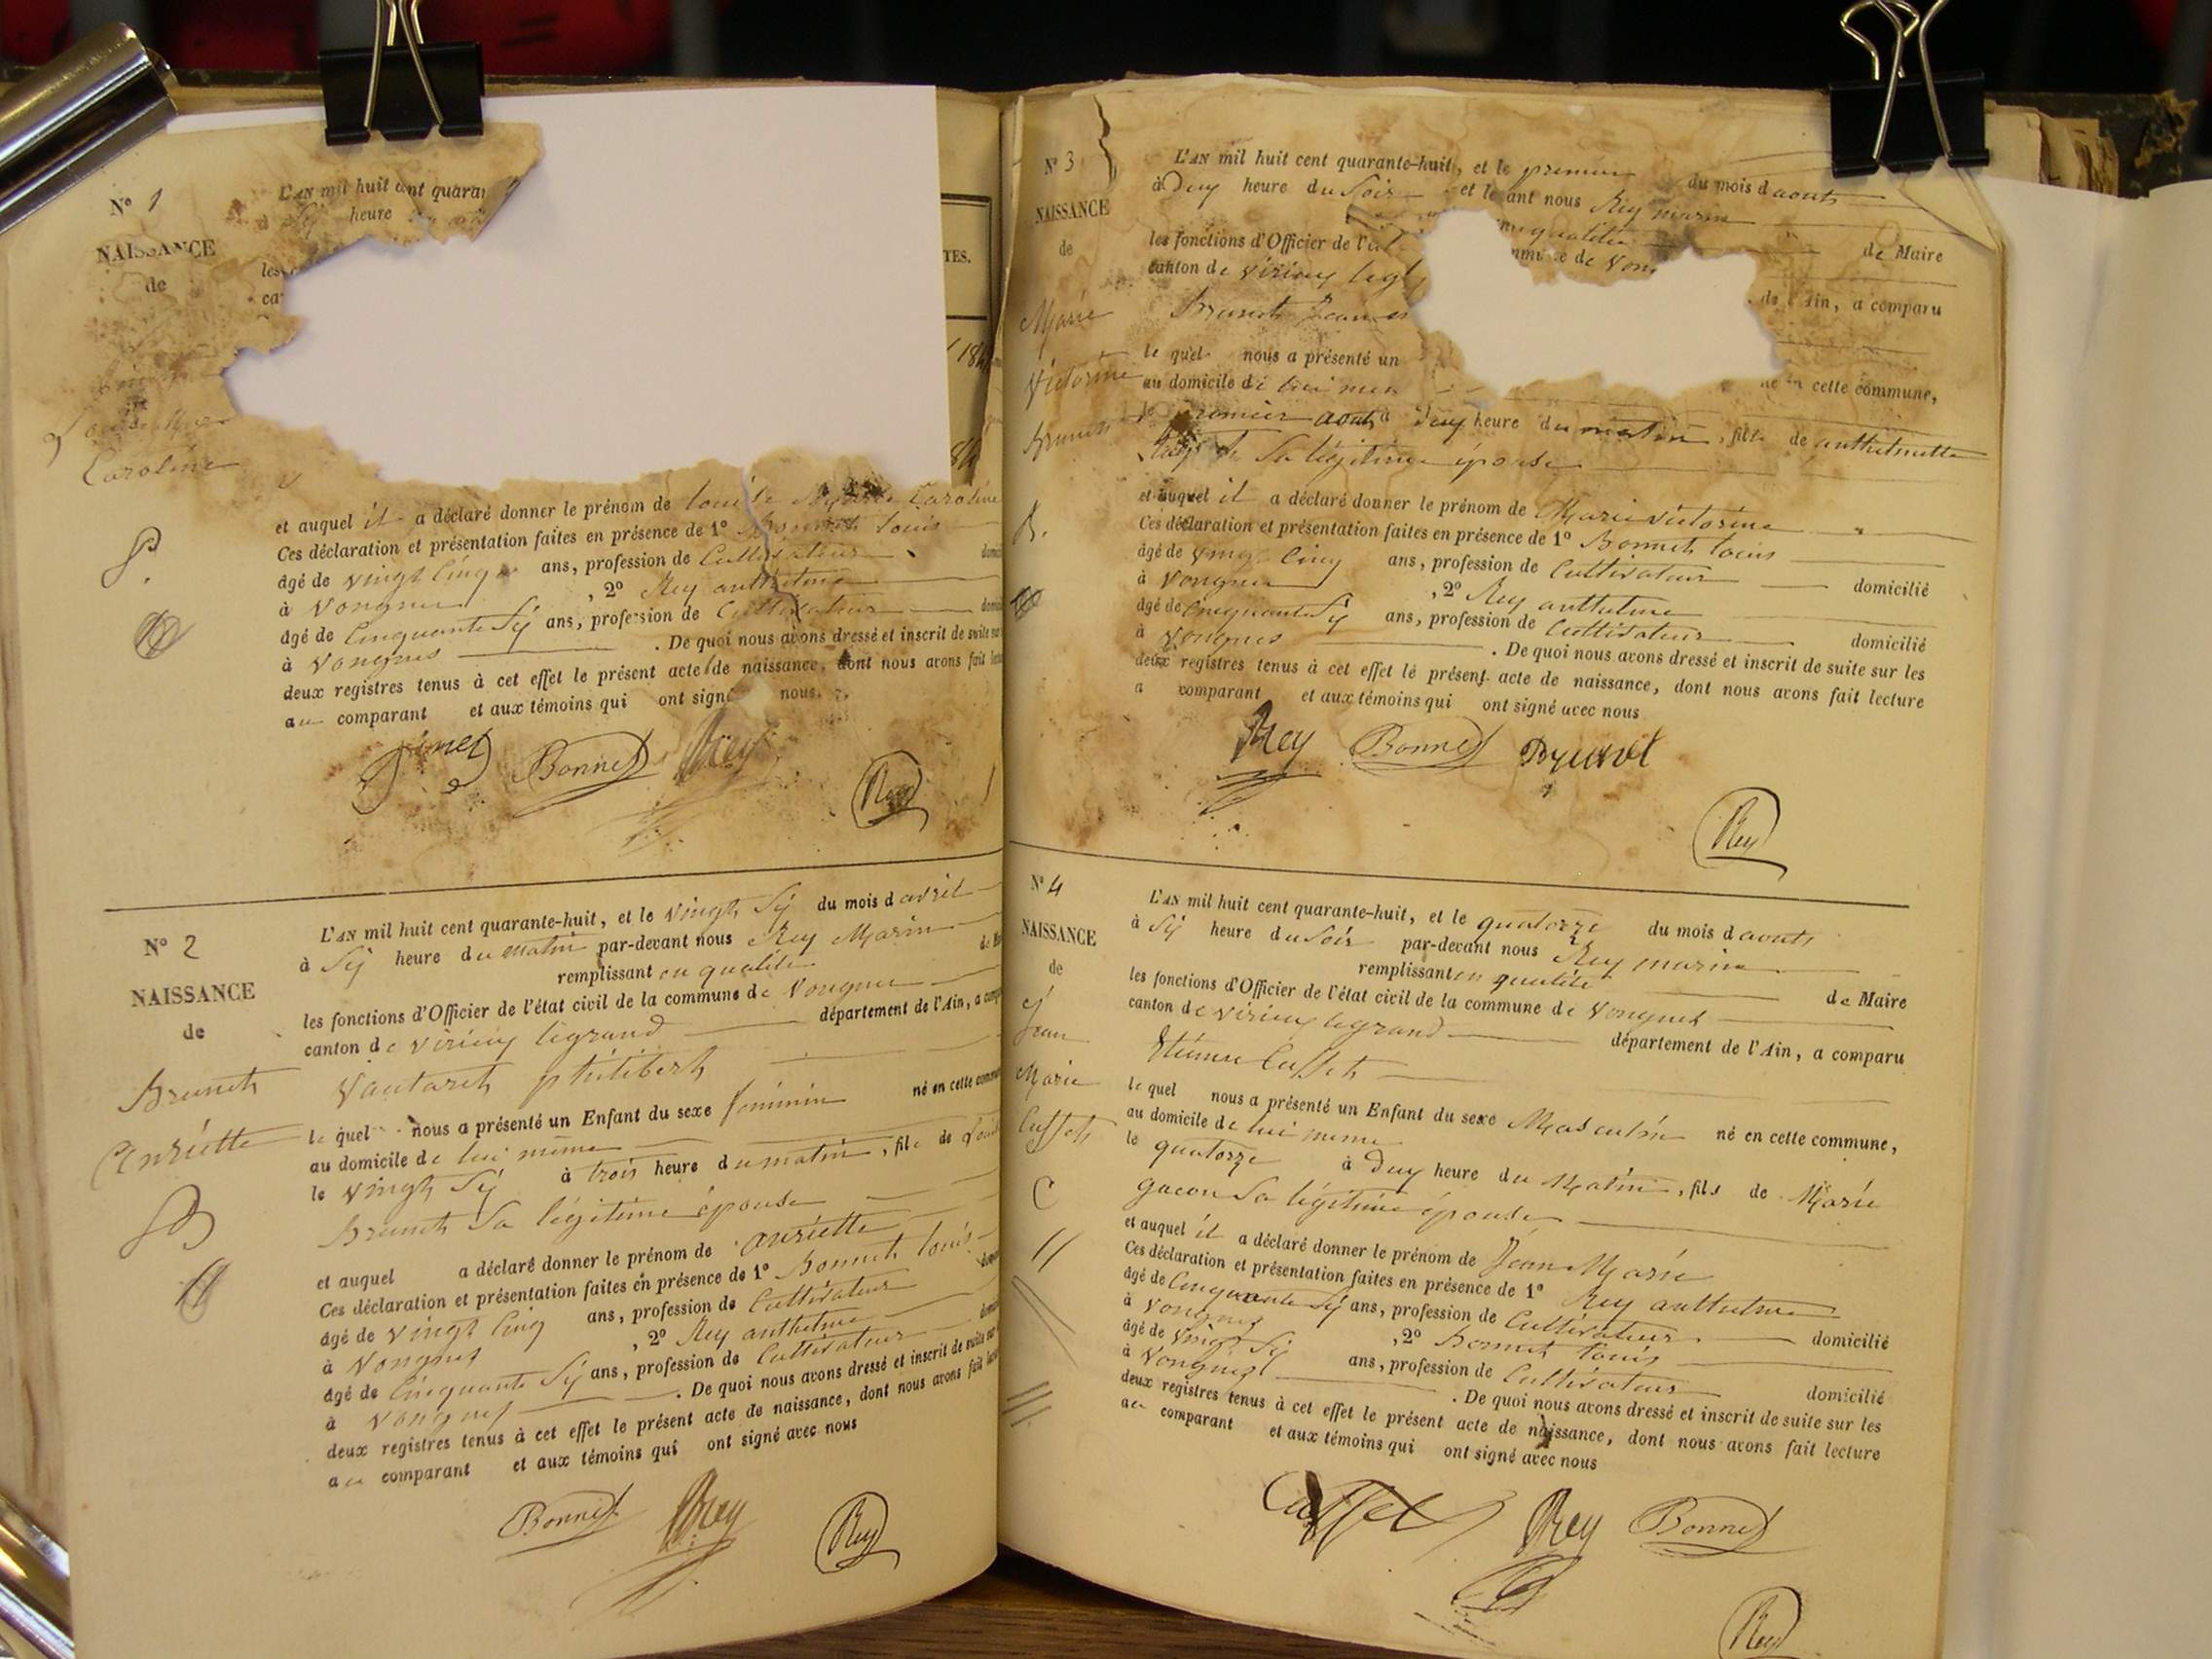 N° 1
NAISSANCE
de
Caroline
L'AN mil huit cent quaran
heure
les
et auquel il a déclaré donner le prénom de louise Caroline
Ces déclaration et présentation faites en présence de 1° Bonnet louis
âgé de vingt cinq ans, profession de Cultivateur
à Vongnes , 2° Rey anthelme
âgé de Cinquante Six ans, profession de Cultivateur
à Vongnes . De quoi nous avons dressé et inscrit de suite sur
deux registres tenus à cet effet le présent acte de naissance, dont nous avons fait
au comparant et aux témoins qui ont signé nous.
Bonnet Rey
Rey
N° 2
NAISSANCE
de
Brunet
Anriette
B
L'AN mil huit cent quarante-huit, et le vingt Six du mois d avril
à Six heure du matin par-devant nous Rey Marin
remplissant en qualité
les fonctions d'Officier de l'état civil de la commune de Vongnes
canton de virieu legrand département de l'Ain, a comp
Vautaret philibert
le quel nous a présenté un Enfant du sexe féminin né en cette commu
au domicile de lui même
le vingt Six à trois heure du matin, fils de
Brunet Sa légitime épouse
et auquel a déclaré donner le prénom de anriette
Ces déclaration et présentation faites en présence de 1° Bonnet louis
âgé de vingt Cinq ans, profession de Cultivateur
à Vongnes , 2° Rey anthelme
âgé de Cinquante Six ans, profession de Cultivateur
à Vongnes . De quoi nous avons dressé et inscrit de suite sur
deux registres tenus à cet effet le présent acte de naissance, dont nous avons fait
au comparant et aux témoins qui ont signé avec nous
Bonnet Rey
Rey
TES.
N° 3
NAISSANCE
de
Marie
Victorine
Brunet
B.
L'AN mil huit cent quarante-huit, et le premier du mois d aout
à Deux heure du Soir et le ant nous Rey marin
en qualité de Maire
les fonctions d'Officier de l'
canton de virieu leg
de l'Ain, a comparu
Brunet Jean
le quel nous a présenté un
au domicile de lui mem en cette commune,
le premier aout à Deux heure du matin, fils de anthelmette
Sa légitime épouse
et auquel il a déclaré donner le prénom de Marie victorine
Ces déclaration et présentation faites en présence de 1° Bonnet louis
âgé de vingt Cinq ans, profession de Cultivateur
à Vongnes , 2° Rey anthelme domicilié
âgé de Cinquante Six ans, profession de Cultivateur
à Vongnes . De quoi nous avons dressé et inscrit de suite sur les domicilié
deux registres tenus à cet effet le présent acte de naissance, dont nous avons fait lecture
a comparant et aux témoins qui ont signé avec nous
Rey Bonnet Brunet
Rey
N° 4
NAISSANCE
de
Jean
Marie
Cusset
C
L'AN mil huit cent quarante-huit, et le quatorze du mois d aout
à Six heure du Soir par-devant nous Rey marin
remplissant en qualité de Maire
les fonctions d'Officier de l'état civil de la commune de Vongnes
canton de virieu legrand département de l'Ain, a comparu
Etienne Cusset
le quel nous a présenté un Enfant du sexe Masculin né en cette commune,
au domicile de lui meme
le quatorze à Deux heure du Matin, fils de Marie
gacon Sa légitime épouse
et auquel il a déclaré donner le prénom de Jean Marie
Ces déclaration et présentation faites en présence de 1° Rey anthelme
âgé de Cinquante Six ans, profession de Cultivateur domicilié
à Vongnes ,2° Bonnet louis
âgé de vingt Six ans, profession de Cultivateur domicilié
à Vongnes . De quoi nous avons dressé et inscrit de suite sur les
deux registres tenus à cet effet le présent acte de naissance, dont nous avons fait lecture
au comparant et aux témoins qui ont signé avec nous
Cusset Rey Bonnet
Rey